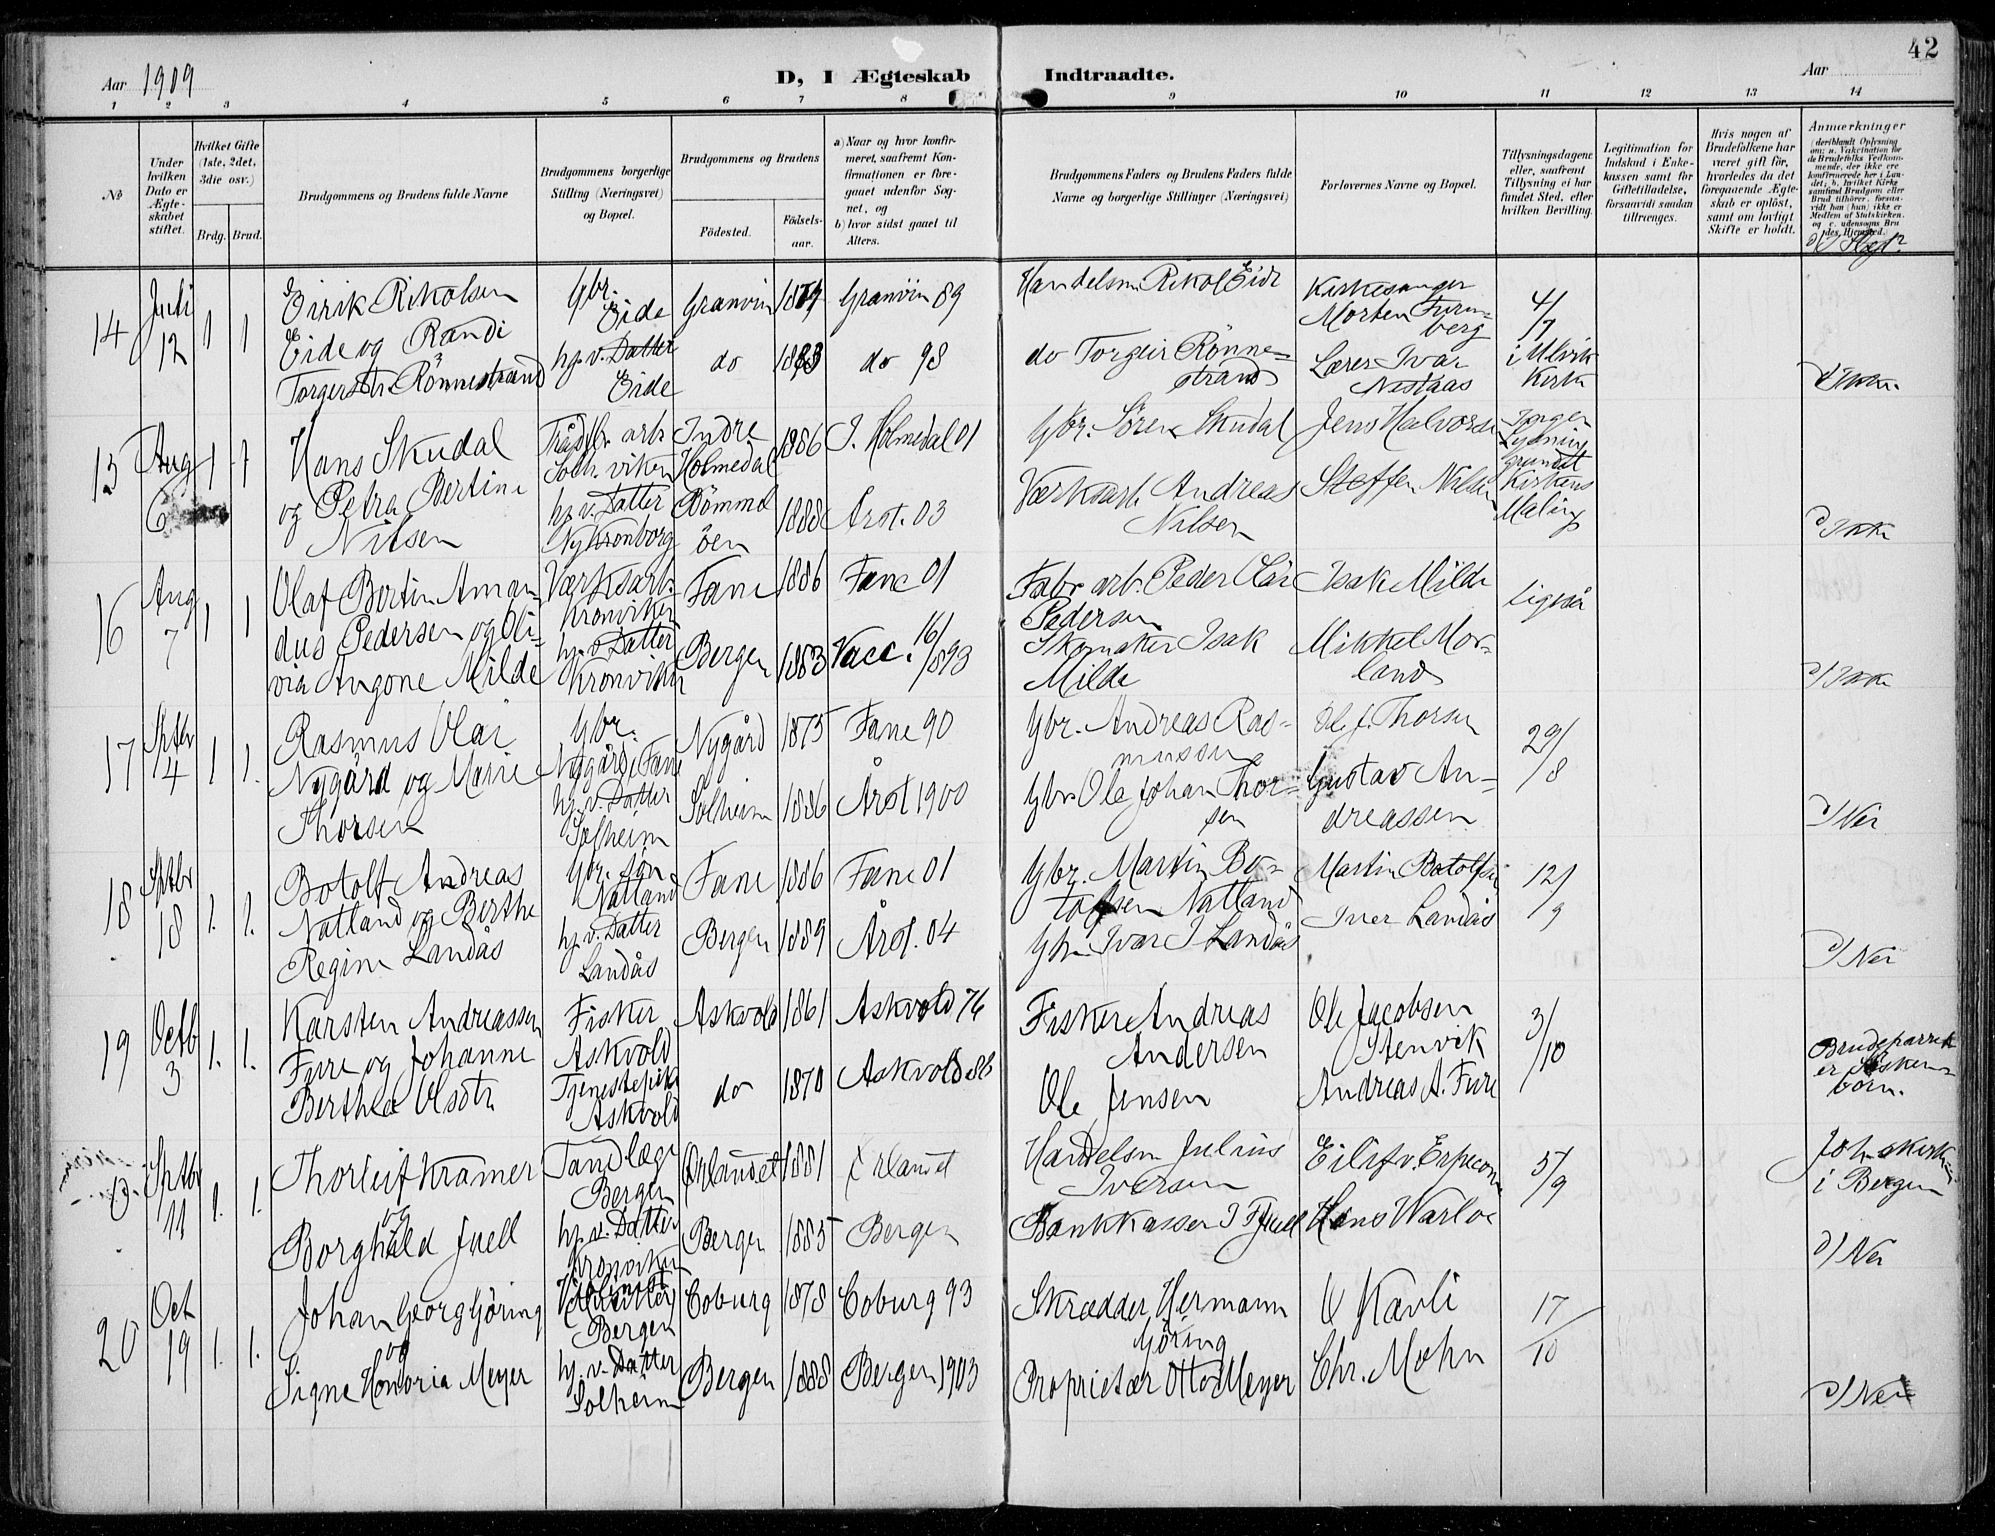 42
Aar 1909
D, I Ægteskab Indtraadte.
Aar
1 2 3 4 5 6 7 8 9 10 11 12 13 14
No
Under hvilken Dato er Ægteskabet stiftet.
Hvilket Gifte (1ste, 2det, 3die osv.)
Brdg. Brud.
Brudgommens og Brudens fulde Navne
Brudgommens borgerlige Stilling (Næringsvei) og Bopæl.
Brudgommens og Brudens
Födested.
Födselsaar.
a) Naar og hvor konfirmeret, saafremt Konfirmationen er foregaaet udenfor Sognet, og
b) hvor sidst gaaet til Alters.
Brudgommens Faders og Brudens Faders fulde Navne og borgerlige Stillinger (Næringsvei)
Forlovernes Navne og Bopæl.
Tillysningsdagene eller, saafremt Tillysning ei har fundet Sted, efter hvilken Bevilling.
Legitimation for Indskud i Enkekassen samt for Giftetilladelse, forsaavidt saadan tiltrænges.
Hvis nogen af Brudefolkene har været gift för, hvorledes da det foregaaende Ægteskab er oplöst, samt om lovligt Skifte er holdt.
Anmærkninger
14 Juli 12 1 1
Eirik Rikolsen
Eide og Randi
Torgersdtr Rönnestrand
Gbr.
Eide
hj. v. Datter
Eide
Granvin 1879 Granvin 89
do 1883 do 98
Handelsm Rikol Eide
do Torgeir Rönne-
strand
Kirkesanger
Morten Furu-
berg
Lærer Ivar
Nestaas
4/7
i Ulvik
Kirke
15 Aug 6 1 1
Hans Skudal
og Petra Bertine
Nilsen
Solh. viken
hj. v. Datter
Ny Kronborg
Indre
Holmedal
1886 I. Holmedal 01
Römmel
öen
1888 Årst. 03
Gbr. Sören Skudal
Værksarb Andreas
Nilsen
Jens Halvorsen
Steffen Nilsen
Kirkens
Maling
d) Ikke
16 Aug 7 1 1
Olaf Bertin Aman-
dus Pedersen og Oli-
via Angone Milde
Værksarb.
Kronviken
hj. v. Datter
Kronviken
Fane 1886 Fane 01
Bergen 1883 Vacc. 16/ /893
Fabr arb. Peder Olai
Pedersen
Skomaker Isak
Milde
Isak Milde
Mikkel Mor-
land
ligeså
d) Ikke
17 Sptbr 4 1 1.
Rasmus Olai
Nygård og Marie
Thorsen
Gbr.
Nygård i Fane
hj. v. Datter
Solheim
Nygård 1875 Fane 90
Solheim 1886 Årst 1900
Gbr. Andreas Ras-
mussen
Gbr Ole Johan Thor-
sen
Ole J. Thorsen
Gustav An-
dreassen
29/8
d) Nei
18 Sptbr 18 1. 1.
Botolf Andreas
Natland og Berthe
Regine Landås
Gbr. sön
Natland
hj. v. Datter
Landås
Fane 1886 Fane 01
Bergen 1889 Årst. 04
Gbr. Martin Bo-
tolfsen Natland
Gbr Ivar I Landås
Martin Botolfsen
Iver Landås
12/9
d) Nei
19 Octb 3 1. 1.
Karsten Andreassen
Fure og Johanne
Berthea Olsdtr
Fisker
Askvold
Tjenestepike
Askvold
Askvold 1861 Askvold 76
do 1870 Askvold 86
Fisker Andreas
Andersen
Ole Jensen
Ole Jacobsen
Stenvik
Andreas A. Fure
3/10
Brudeparret
er Sösken-
börn.
Sptbr 11 1. 1.
Thorleif Kramer
og
Borghild Juell
Tandlæge
Bergen
hj. v. Datter
Kronviken
Örlandet 1881 Örlandet
Bergen 1885 Bergen
Handelsm Julius
Iversen
Bankkasser J F Juell
Eilif v. Erpecom
Hans Warloe
5/9
Johskirken
i Bergen
d) Nei
20 Oct 19 1. 1.
Johan Georg Göring
og
Signe Honoria Meyer
Bergen
hj. v. Datter
Solheim
Coburg 1878 Coburg 93
Bergen 1888 Bergen 1903
Skrædder Hermann
Göring
Proprietær Otto Meyer
O Kavli
Chr. Mohn
17/10
d) Nei